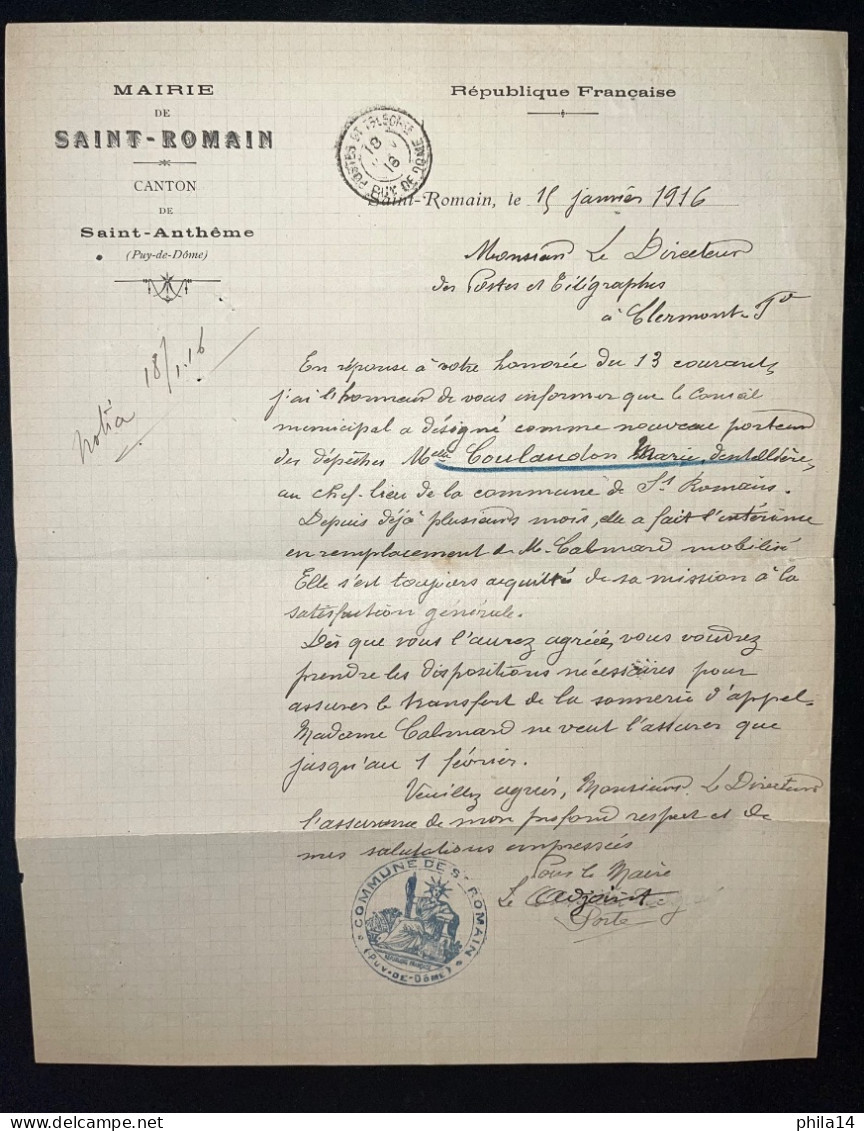 MAIRIE
DE
SAINT-ROMAIN
CANTON
DE
Saint-Anthême
(Puy-de-Dôme)
République Française
POSTES ET TÉLÉGPHES PUY DE DOME
18
16
Saint-Romain, le 15 janvier 1916
Monsieur Le Directeur
des Postes et Télégraphes
à Clermont-Fd
Notia 18/1.16
En réponse à votre honorée du 13 courant,
j'ai l'honneur de vous informer que le Conseil
municipal a désigné comme nouveau porteur
des dépêches Melle Coulaudon Marie, dentellière,
au chef-lieu de la commune de St Romain.
Depuis déjà plusieurs mois, elle a fait l'intérime
en remplacement de M. Calmard mobilisé
Elle s'est toujours acquitté de sa mission à la
satisfaction générale.
Dès que vous l'aurez agréée, vous voudrez
prendre les dispositions nécessaires pour
assurer le transfort de la sonnerie d'appel.
Madame Calmard ne veut l'assurer que
jusqu'au 1 février.
Veuillez agréer, Monsieur Le Directeur
l'assurance de mon profond respect et de
mes salutations empressées
Pour le Maire
Le Adjoint
Porte
COMMUNE DE ST ROMAIN
(PUY-DE-DÔME)
delcampe.net
phila14